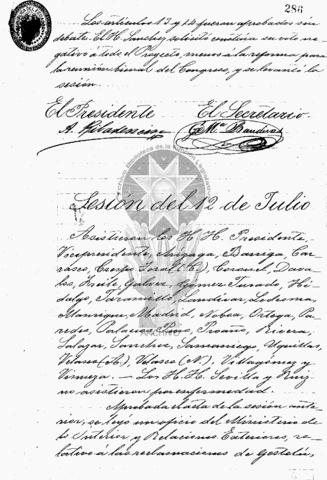 286
Los artículos 13 y 14 fueron aprobados sin
debate. El H. Sanchez solicitó constara su voto ne-
gativo á todo el Proyecto, menos á la reforma para
la reunión bienal del Congreso, y se levantó la
sesión.
El Presidente El Secretario
Sesión del 12 de Julio
Asistieron los H. H. Presidente,
Vicepresidente, Arízaga, Barrega, Car-
rasco, Crespo Toral, Coronel, Dáva-
los, Freile, Gálvez, Gómez Jurado, Hi-
dalgo, Jaramillo, Landívar, Ledesma,
Manrique, Madrid, Noboa, Ortega, Pa-
redes, Palacios, Riera,
Salazar, Sanchez, Samaniego, Uquillas,
Velasco (A.), Velasco (M.), Villagómez y
Vinueza. — Los H. H. Sevilla y Ruiz
no asistieron por enfermedad.
Aprobada el acta de la sesión ante-
rior, se leyó un oficio del Ministerio de
lo Interior y Relaciones Exteriores, re-
lativo á las reclamaciones de